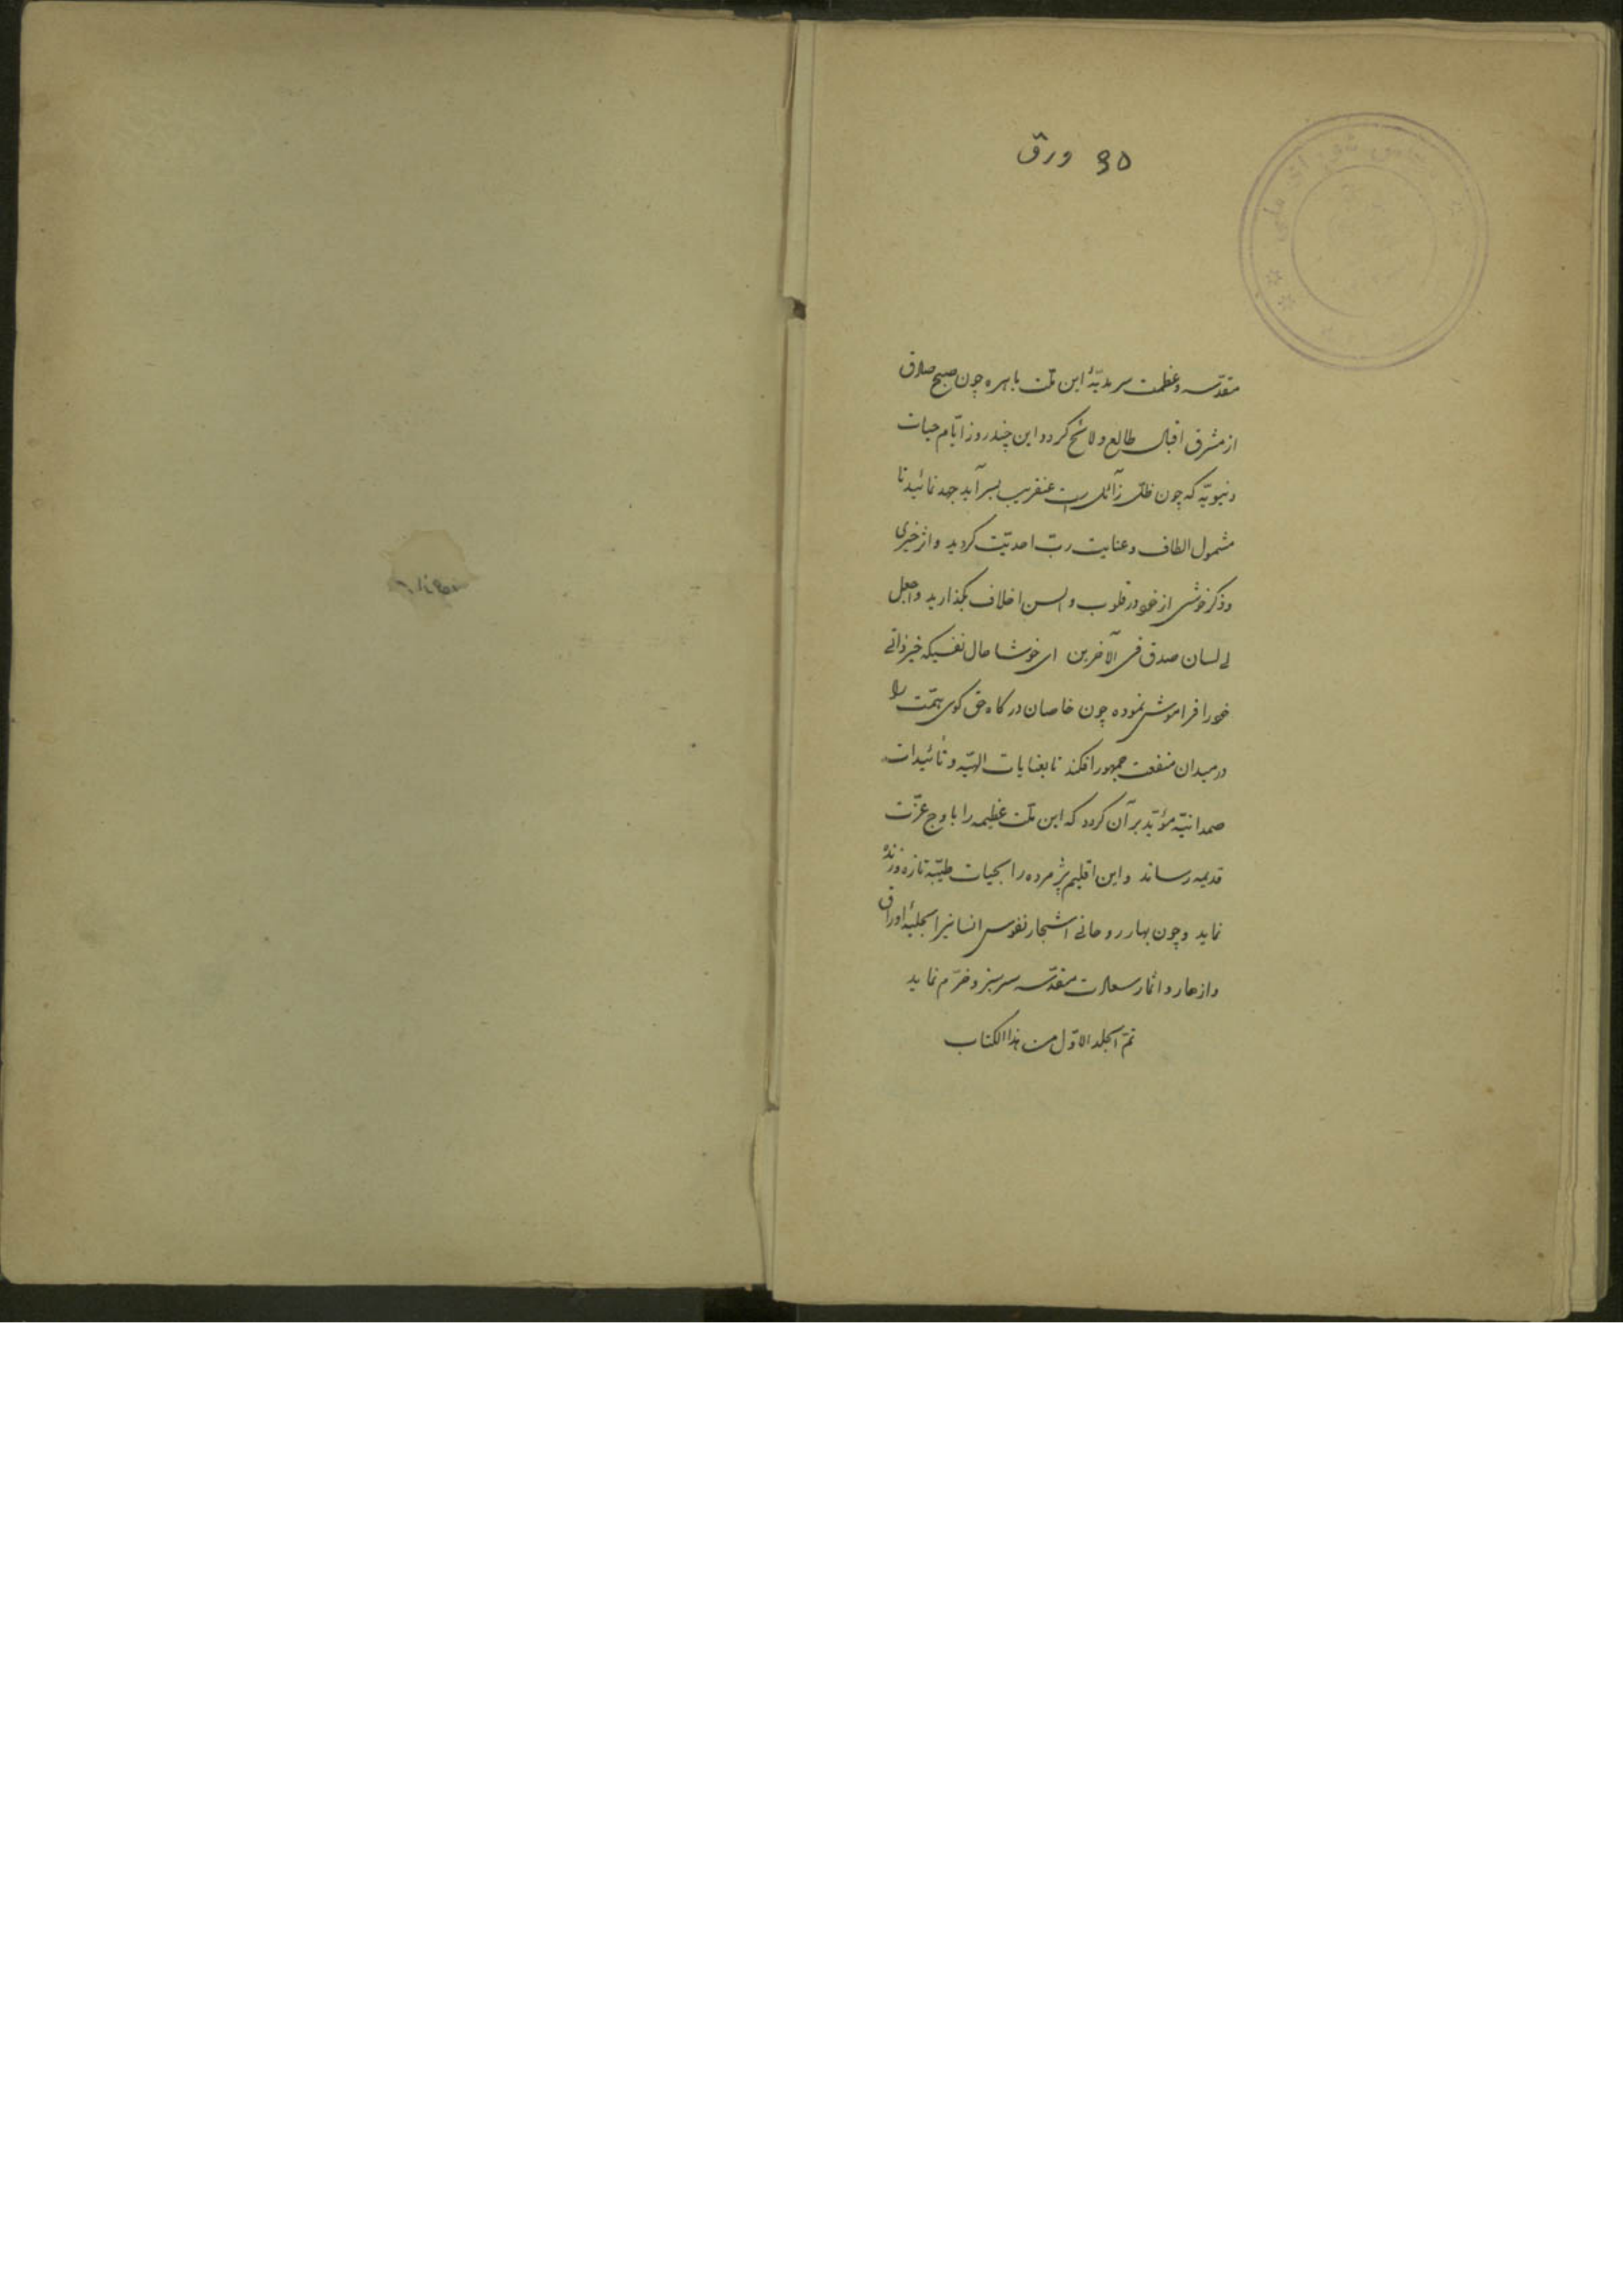 95 ورق
مقدّسه و عظمت سرمدیّهٔ این ملّت باهره چون صبح صادق
از مشرق اقبال طالع و لائح گردد این چند روز ایّام حیات
دنیویّه که چون ظلّ زائل است عنقریب بسر آید جهد نمائید تا
مشمول الطاف و عنایت ربّ احدیّت کردید و اثر خیری
و ذکر خوشی از خود در قلوب و السن اخلاف بگذارید و اجعل
لی لسان صدق فی الآخرین ای خوشا حال نفسیکه خیر ذاتی
خود را فراموش نموده چون خاصان درگاه حق گوی همّت را
در میدان منفعت جمهور افکند تا بعنایات الهیّه و تأئیدات
صمدانیّه مؤیّد بر آن کردد که این ملّت عظیمه را باوج عزّت
قدیمه رساند و این اقلیم پژمرده را بحیات طیّبه تازه و زنده
نماید و چون بهار روحانی اشجار نفوس انسانیرا بحلیهٔ اوراق
و ازهار و اثمار سعادت مقدّسه سرسبز و خرّم نماید
تمّ الجلد الاوّل من هذا الکتاب